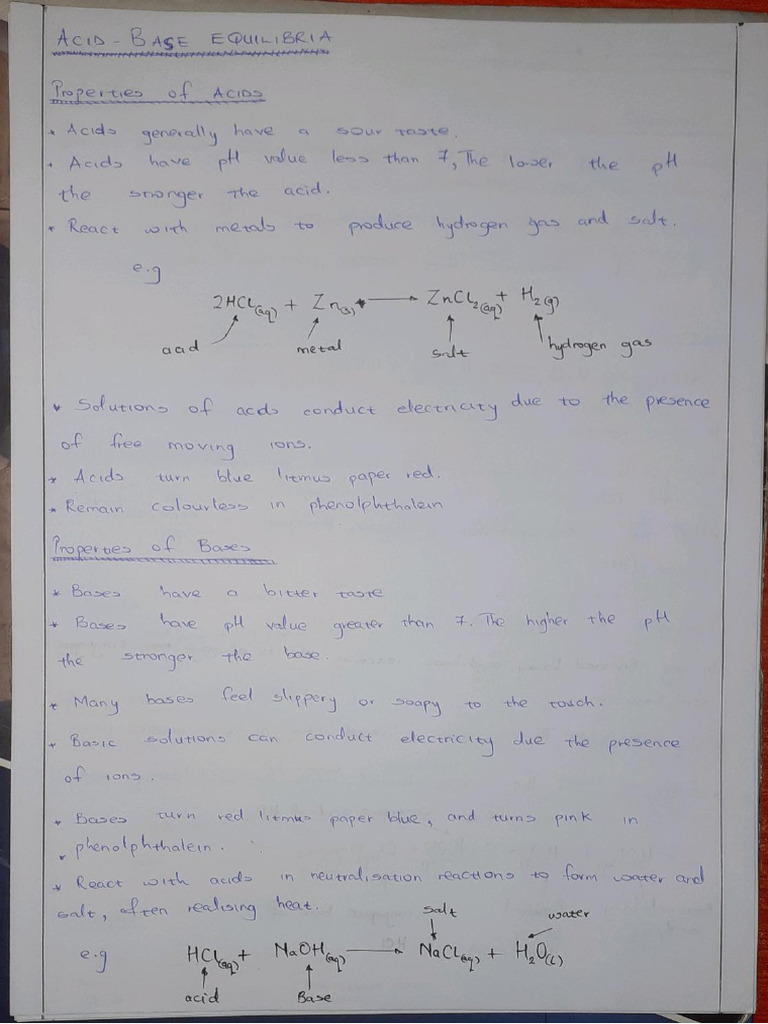 ACID - BASE EQUILIBRIA
Properties of ACIDS
* Acids generally have a sour taste.
* Acids have pH value less than 7, The lower the pH
the stronger the acid.
* React with metals to produce hydrogen gas and salt.
e.g
2HCl(aq) + Zn(s) → ZnCl2(aq) + H2(g)
acid metal salt hydrogen gas
* Solutions of acids conduct electricity due to the presence
of free moving ions.
* Acids turn blue litmus paper red.
* Remain colourless in phenolphthalein
Properties of Bases
* Bases have a bitter taste
* Bases have pH value greater than 7. The higher the pH
the stronger the base.
* Many bases feel slippery or soapy to the touch.
* Basic solutions can conduct electricity due the presence
of ions.
* Bases turn red litmus paper blue, and turns pink in
phenolphthalein.
* React with acids in neutralisation reactions to form water and
salt, often realising heat.
salt water
e.g HCl(aq) + NaOH(aq) → NaCl(aq) + H2O(l)
acid Base